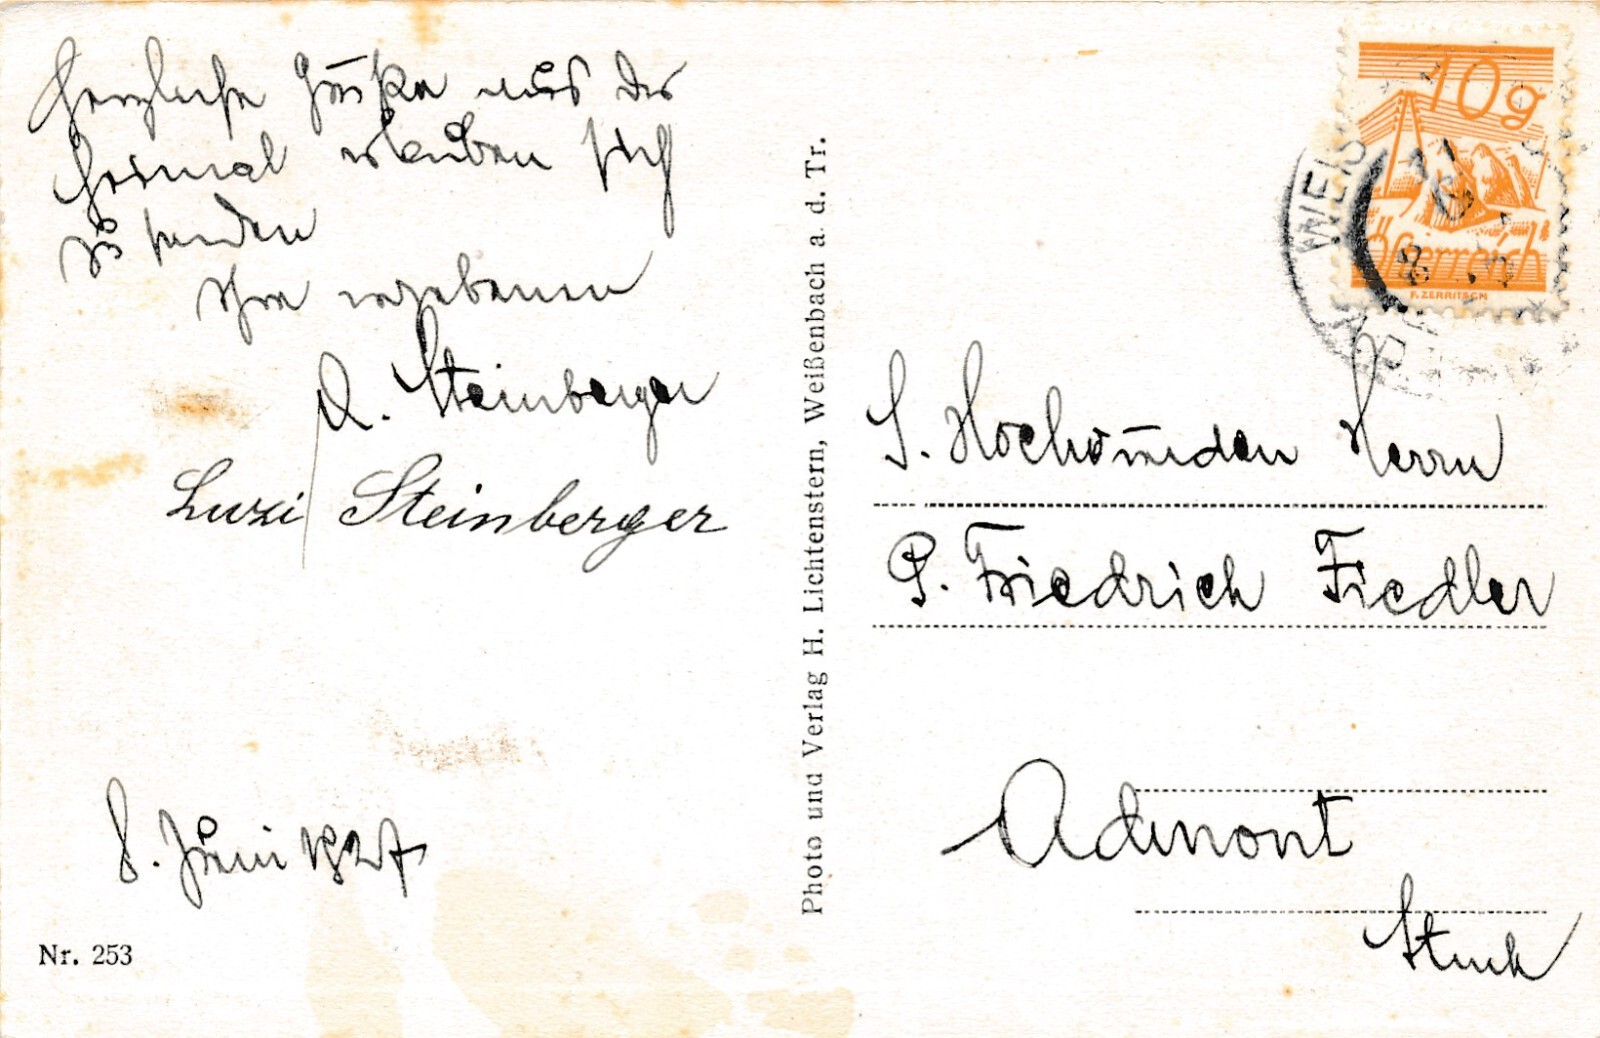 Herzliche Grüße aus der
Heimat erlauben sich
zu senden
Ihre ergebenen
A. Steinberger
Luzi Steinberger
8. Juni 1927
Nr. 253
Photo und Verlag H. Lichtenstern, Weißenbach a. d. Tr.
10g
Österreich
F. ZERRITSCH
WEIS
S. Hochwürden Herrn
P. Friedrich Fiedler
Admont